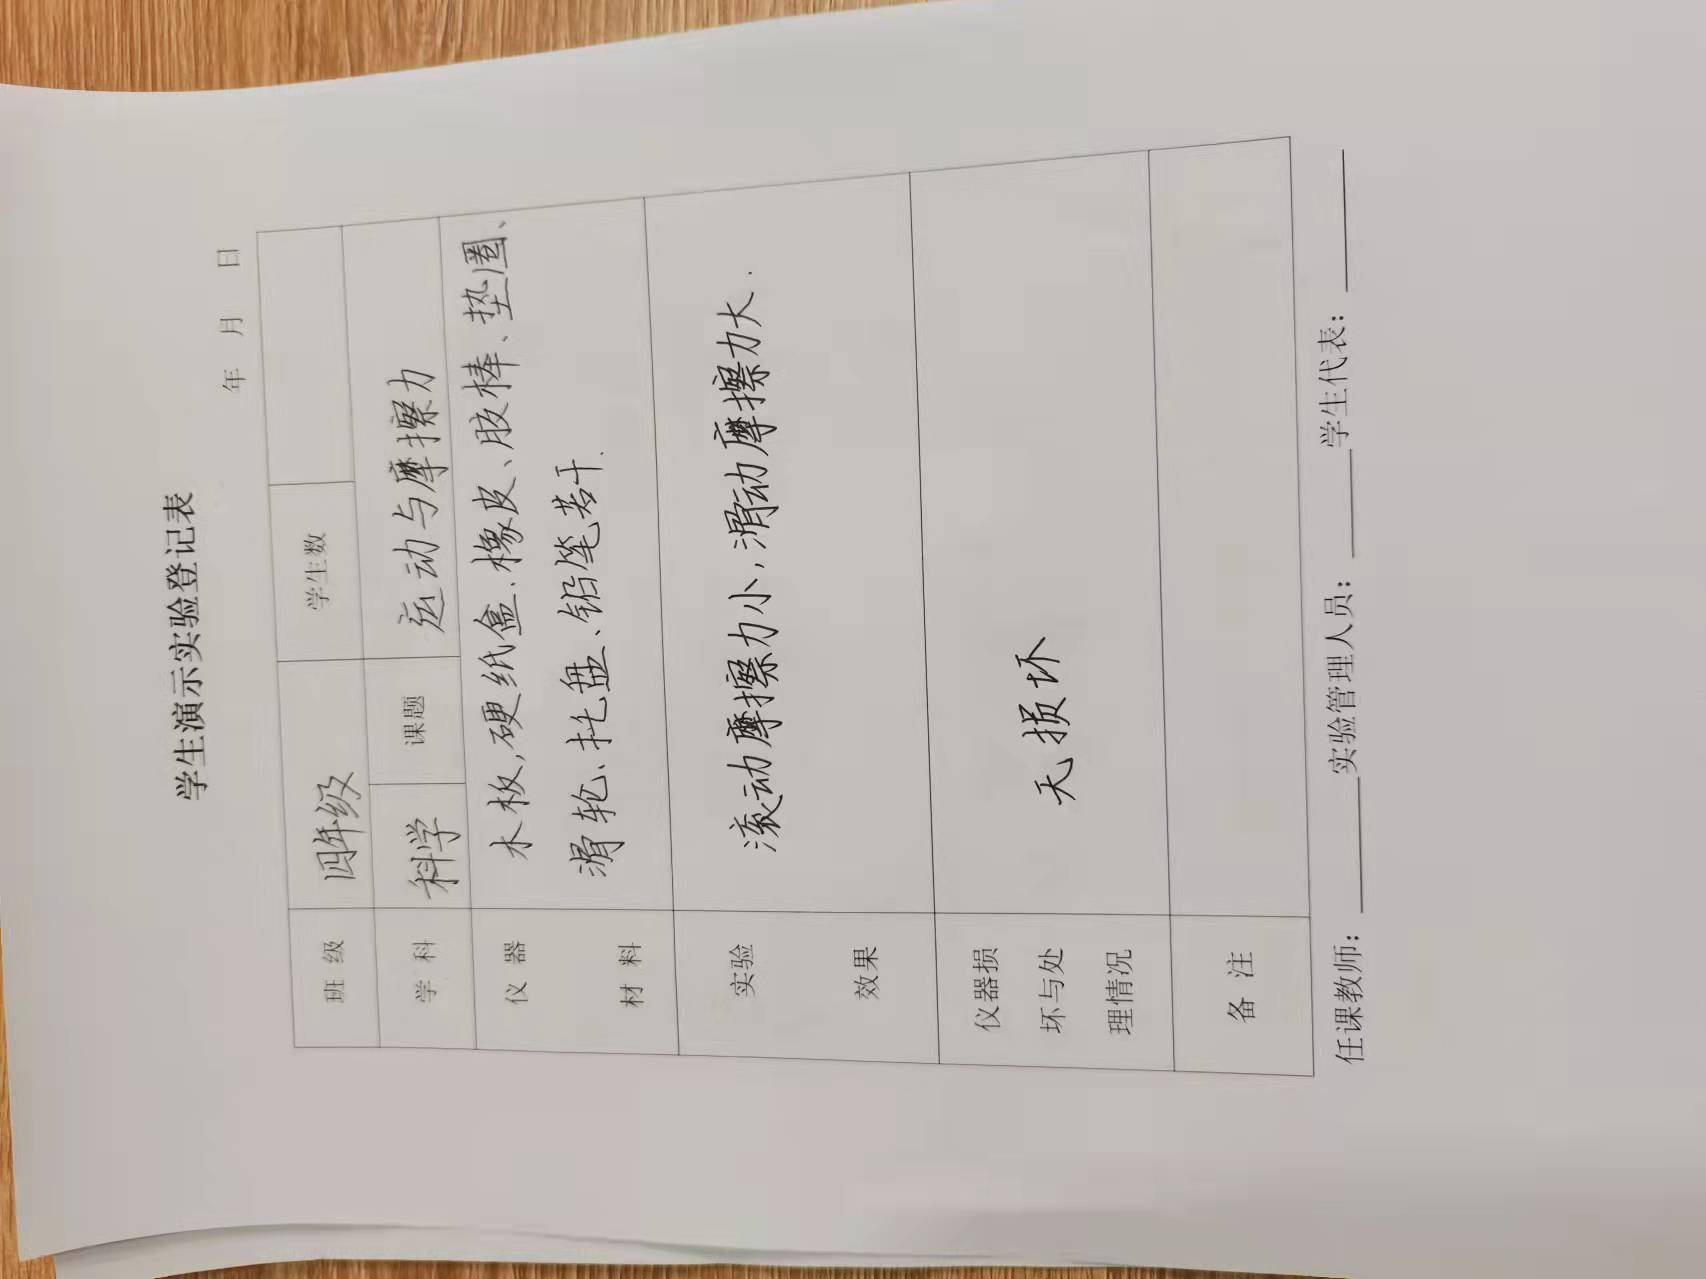 学生演示实验登记表
年 月 日
班 级 四年级 学生数
学 科 科学 课题 运动与摩擦力
仪 器 木板,硬纸盒、橡皮、胶棒、垫圈、
材 料 滑轮、托盘、铅笔若干.
实验 滚动摩擦力小,滑动摩擦力大.
效果
仪器损
坏与处 无损坏
理情况
备 注
任课教师: 实验管理人员: 学生代表: